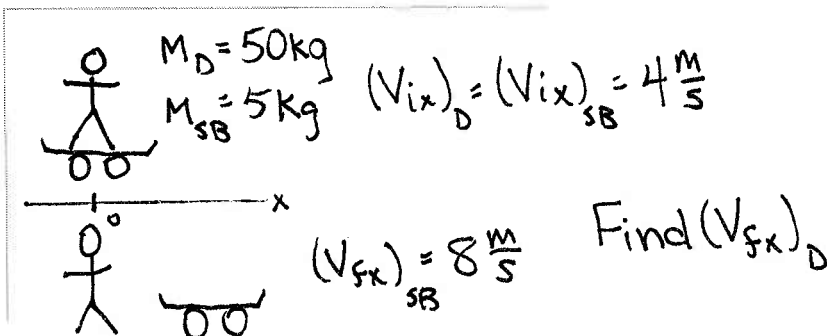 M_D = 50kg
M_SB = 5kg
(V_ix)_D = (V_ix)_SB = 4 m/s
x
0
(V_fx)_SB = 8 m/s
Find (V_fx)_D